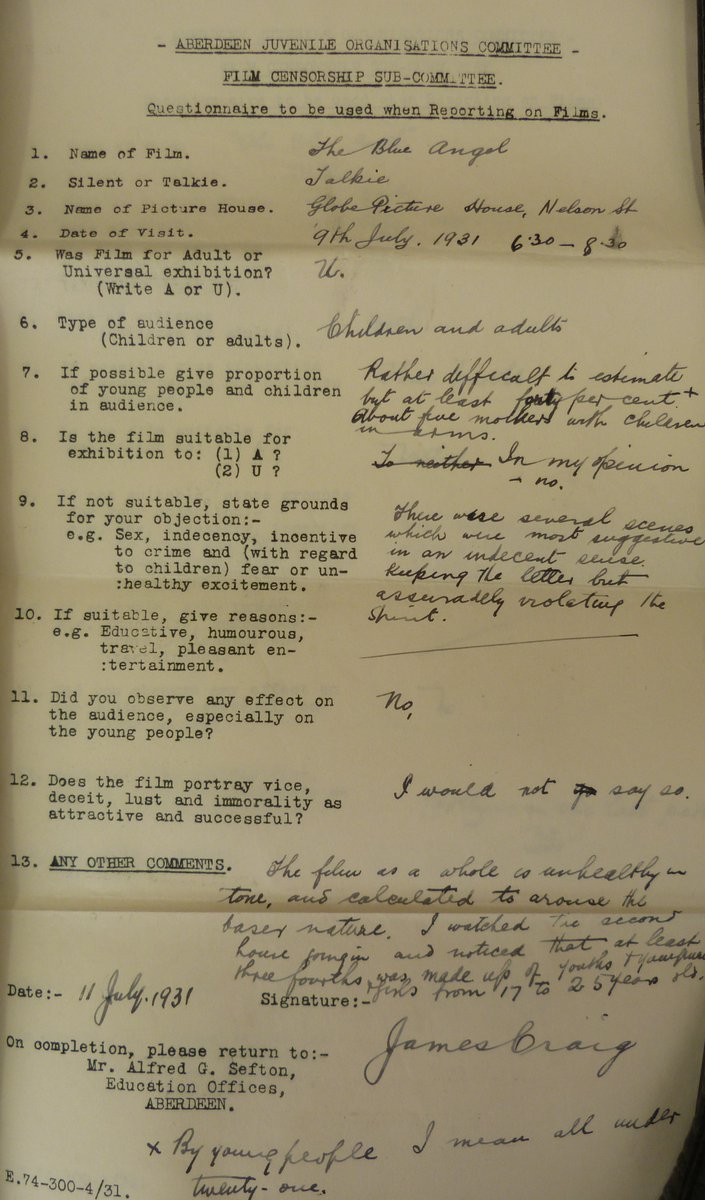 - ABERDEEN JUVENILE ORGANISATIONS COMMITTEE -
FILM CENSORSHIP SUB-COMMITTEE.
Questionnaire to be used when Reporting on Films.
1. Name of Film. The Blue Angel
2. Silent or Talkie. Talkie
3. Name of Picture House. Globe Picture House, Nelson St
4. Date of Visit. 9th July. 1931 6.30 – 8.30
5. Was Film for Adult or
Universal exhibition? U.
(Write A or U).
6. Type of audience Children and adults
(Children or adults).
7. If possible give proportion Rather difficult to estimate
of young people and children but at least forty per cent. +
in audience. About five mothers with children
in arms.
8. Is the film suitable for
exhibition to: (1) A ? To neither In my opinion
(2) U ? – no.
9. If not suitable, state grounds There were several scenes
for your objection:- which were most suggestive
e.g. Sex, indecency, incentive in an indecent sense.
to crime and (with regard Keeping the letter but
to children) fear or un- assuradely violating the
:healthy excitement. Spirit.
10. If suitable, give reasons:-
e.g. Educative, humourous,
travel, pleasant en-
:tertainment.
11. Did you observe any effect on No,
the audience, especially on
the young people?
12. Does the film portray vice,
deceit, lust and immorality as I would not say so.
attractive and successful?
13. ANY OTHER COMMENTS. The film as a whole is unhealthy in
tone, and calculated to arouse the
baser nature. I watched the second
house going in and noticed that at least
three fourths was made up of youths &
girls from 17 to 25 years old.
Date:- 11 July. 1931 Signature:-
James Craig
On completion, please return to:-
Mr. Alfred G. Sefton,
Education Offices,
ABERDEEN.
x By young people I mean all under
twenty-one.
E.74-300-4/31.